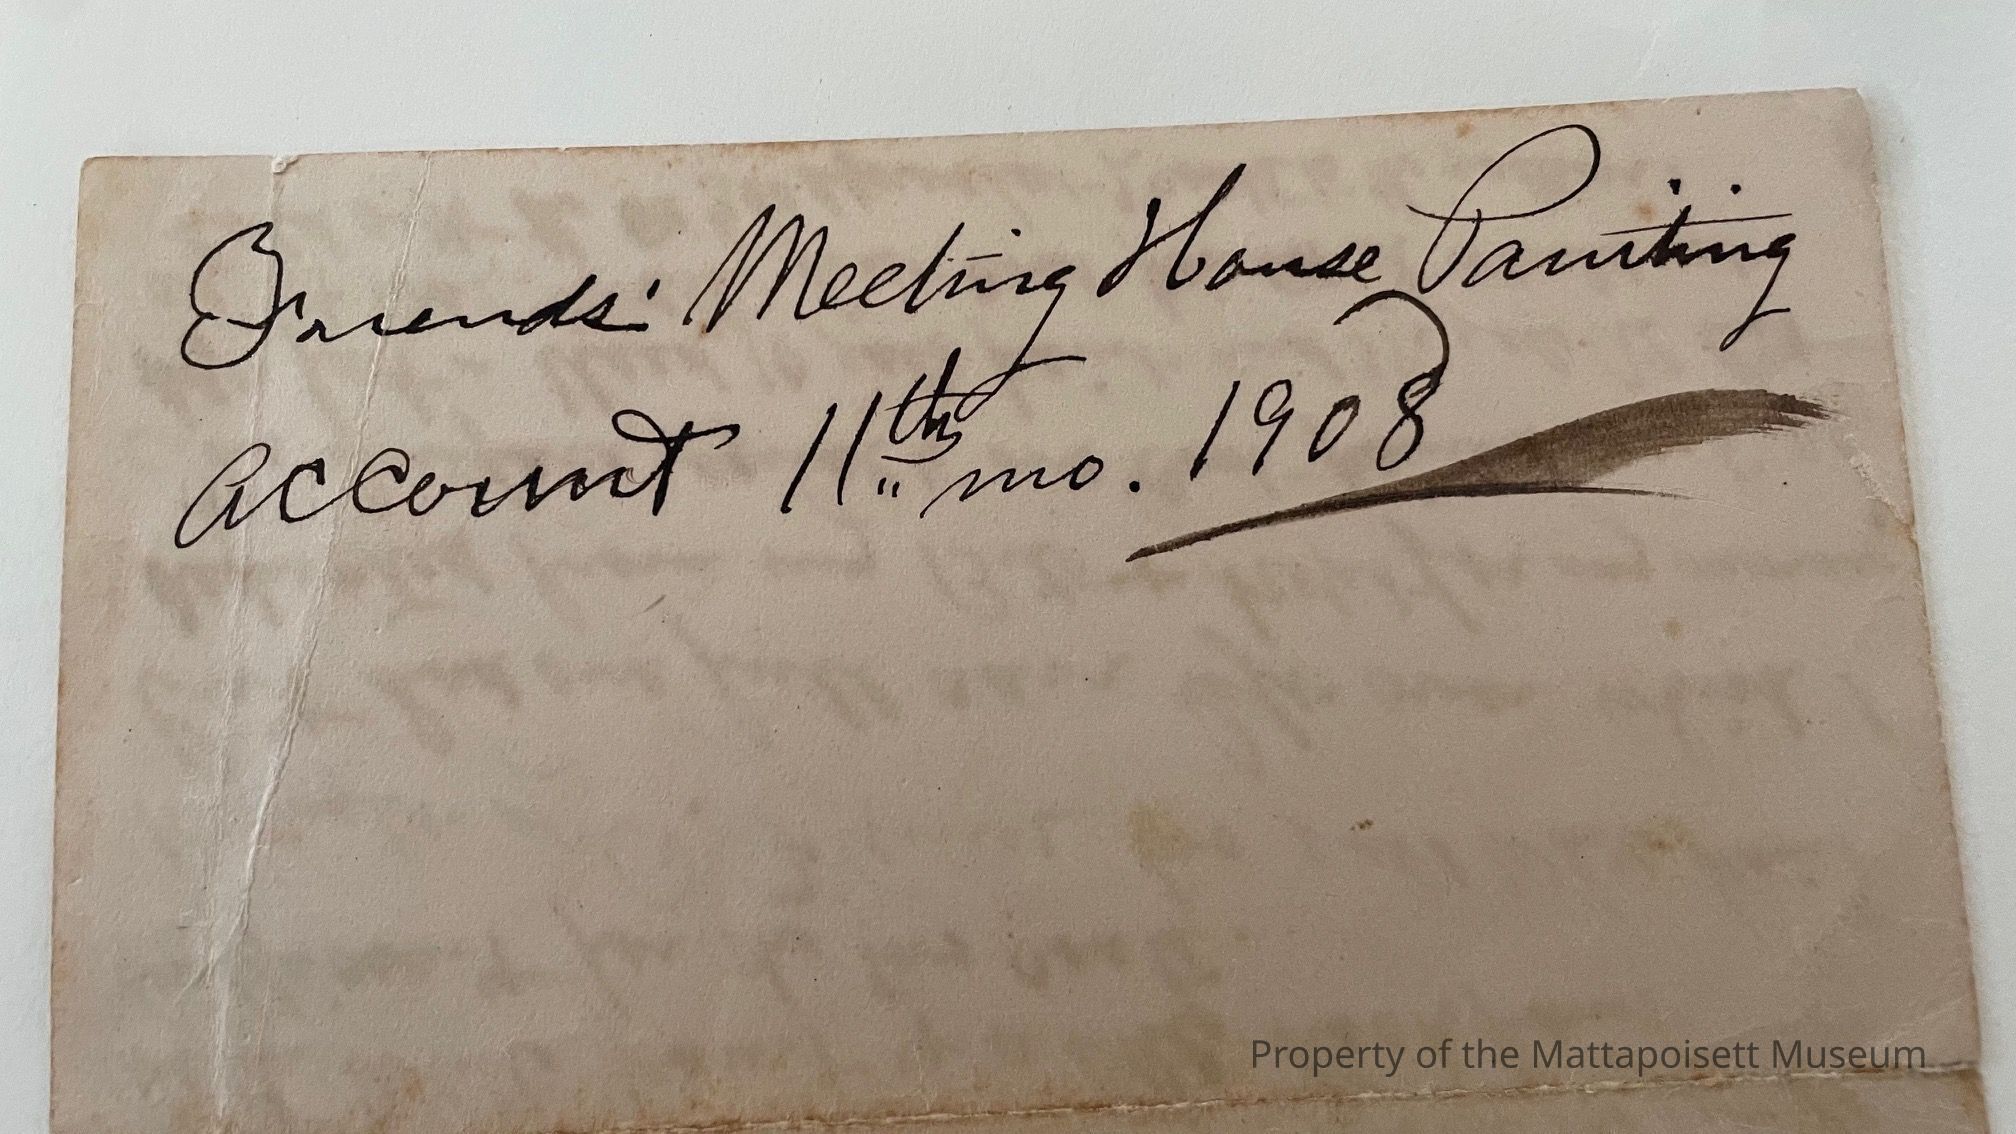 Friends' Meeting House Painting
account 11th mo. 1908
Property of the Mattapoisett Museum